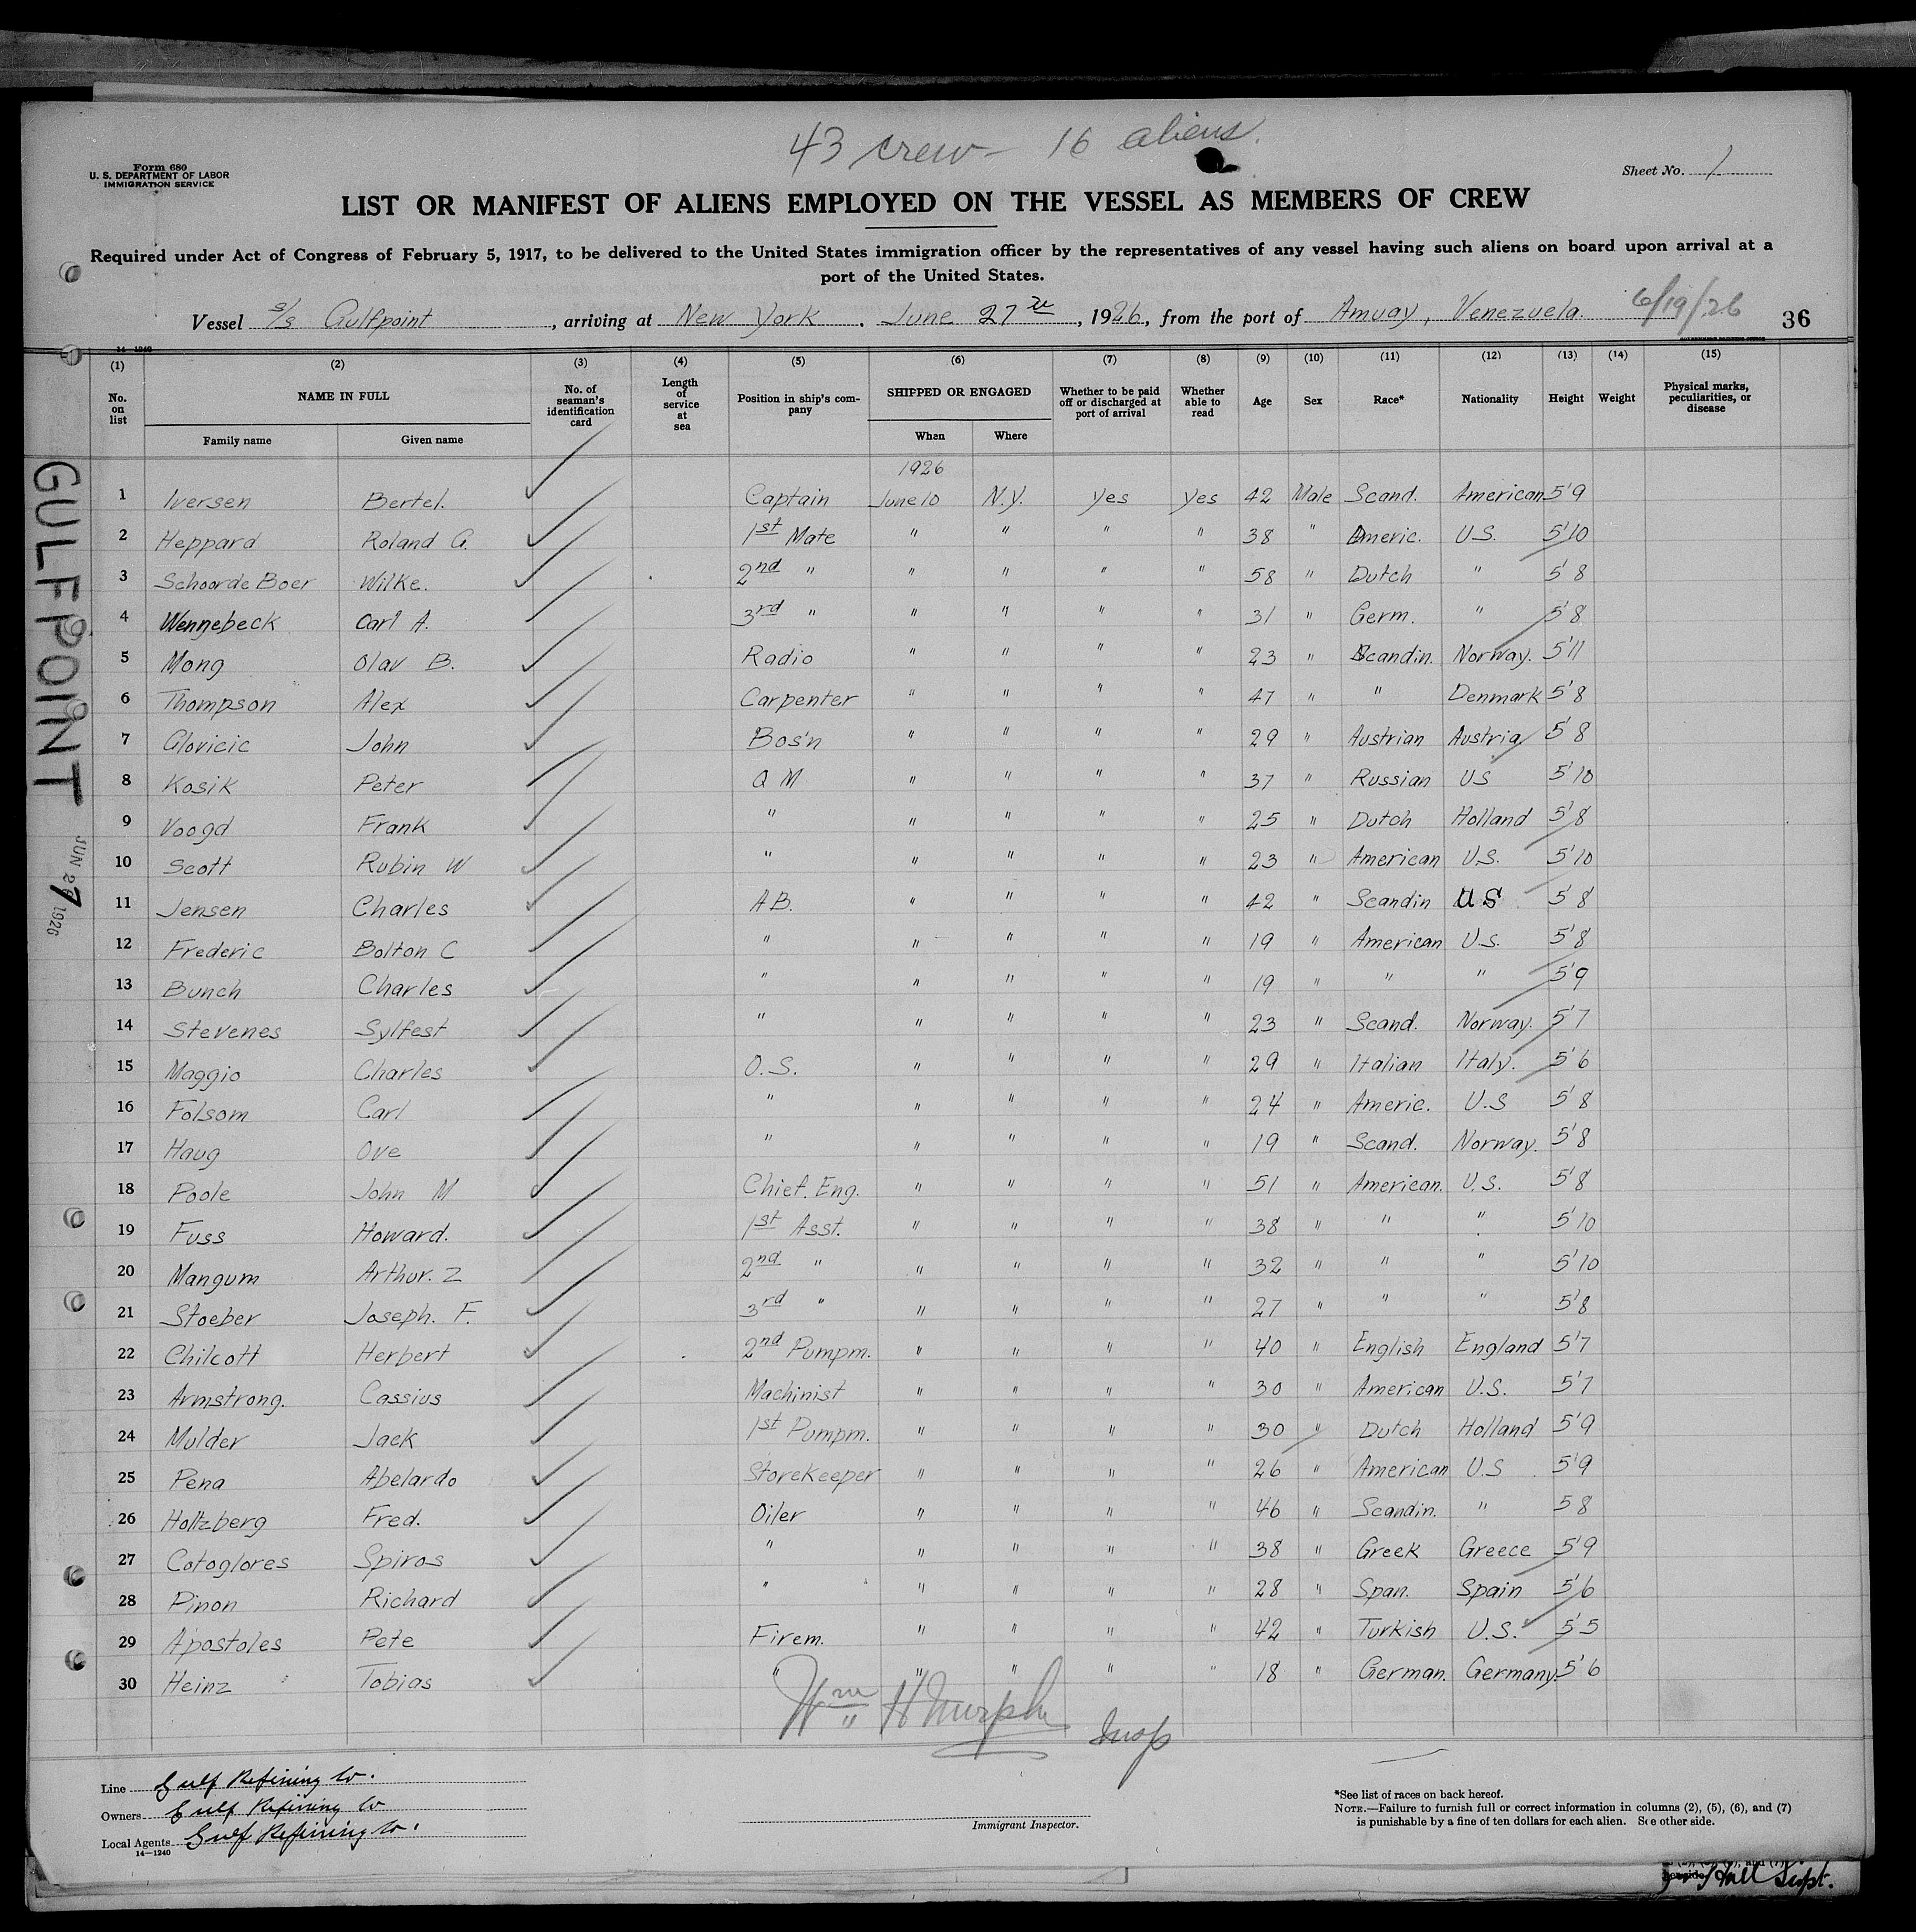 43 crew - 16 aliens.
Form 680
U. S. DEPARTMENT OF LABOR
IMMIGRATION SERVICE
Sheet No. 1
LIST OR MANIFEST OF ALIENS EMPLOYED ON THE VESSEL AS MEMBERS OF CREW
Required under Act of Congress of February 5, 1917, to be delivered to the United States immigration officer by the representatives of any vessel having such aliens on board upon arrival at a
port of the United States.
Vessel s/s Gulfpoint, arriving at New York. June 27th, 1926, from the port of Amuay, Venezuela. 6/19/26 36
14-1240
(1) (2) (3) (4) (5) (6) (7) (8) (9) (10) (11) (12) (13) (14) (15)
No. on list NAME IN FULL Family name Given name No. of seaman's identification card Length of service at sea Position in ship's company SHIPPED OR ENGAGED When Where Whether to be paid off or discharged at port of arrival Whether able to read Age Sex Race* Nationality Height Weight Physical marks, peculiarities, or disease
1926
1 Iversen Bertel. Captain June 10 N.Y. Yes Yes 42 Male Scand. American 5'9
2 Heppard Roland G. 1st Mate " " " " 38 " Americ. U.S. 5'10
3 Schoorde Boer Wilke. 2nd " " " " " 58 " Dutch " 5'8
4 Wennebeck Carl A. 3rd " " " " " 31 " Germ. " 5'8
5 Mong Olav B. Radio " " " " 23 " Scandin. Norway. 5'11
6 Thompson Alex Carpenter " " " " 47 " " Denmark 5'8
7 Glovicic John Bos'n " " " " 29 " Austrian Austria 5'8
8 Kosik Peter Q M " " " " 37 " Russian US 5'10
9 Voogd Frank " " " " " 25 " Dutch Holland 5'8
10 Scott Rubin W " " " " " 23 " American U.S. 5'10
11 Jensen Charles A B. " " " " 42 " Scandin US 5'8
12 Frederic Bolton C " " " " " 19 " American U.S. 5'8
13 Bunch Charles " " " " " 19 " " " 5'9
14 Stevenes Sylfest " " " " " 23 " Scand. Norway. 5'7
15 Maggio Charles O.S. " " " " 29 " Italian Italy. 5'6
16 Folsom Carl " " " " " 24 " Americ. U.S 5'8
17 Haug Ove " " " " " 19 " Scand. Norway. 5'8
18 Poole John M Chief. Eng. " " " " 51 " American. U.S. 5'8
19 Fuss Howard. 1st Asst. " " " " 38 " " " 5'10
20 Mangum Arthur. Z 2nd " " " " " 32 " " " 5'10
21 Stoeber Joseph. F. 3rd " " " " " 27 " " " 5'8
22 Chilcott Herbert 2nd Pumpm. " " " " 40 " English England 5'7
23 Armstrong. Cassius Machinist " " " " 30 " American U.S. 5'7
24 Mulder Jack 1st Pumpm. " " " " 30 " Dutch Holland 5'9
25 Pena Abelardo Storekeeper " " " " 26 " American U.S 5'9
26 Holtzberg Fred. Oiler " " " " 46 " Scandin. " 5 8
27 Cotoglores Spiros " " " " " 38 " Greek Greece 5'9
28 Pinon Richard " " " " " 28 " Span. Spain 5'6
29 Apostoles Pete Firem. " " " " 42 " Turkish U.S. 5'5
30 Heinz Tobias " " " " " 18 " German. Germany. 5'6
Wm H Murphy Insp
GULFPOINT
JUN 27 1926
Line Gulf Refining Co.
Owners Gulf Refining Co
Local Agents Gulf Refining Co.
14-1240
Immigrant Inspector.
*See list of races on back hereof.
NOTE.—Failure to furnish full or correct information in columns (2), (5), (6), and (7)
is punishable by a fine of ten dollars for each alien. See other side.
Hall Supt.